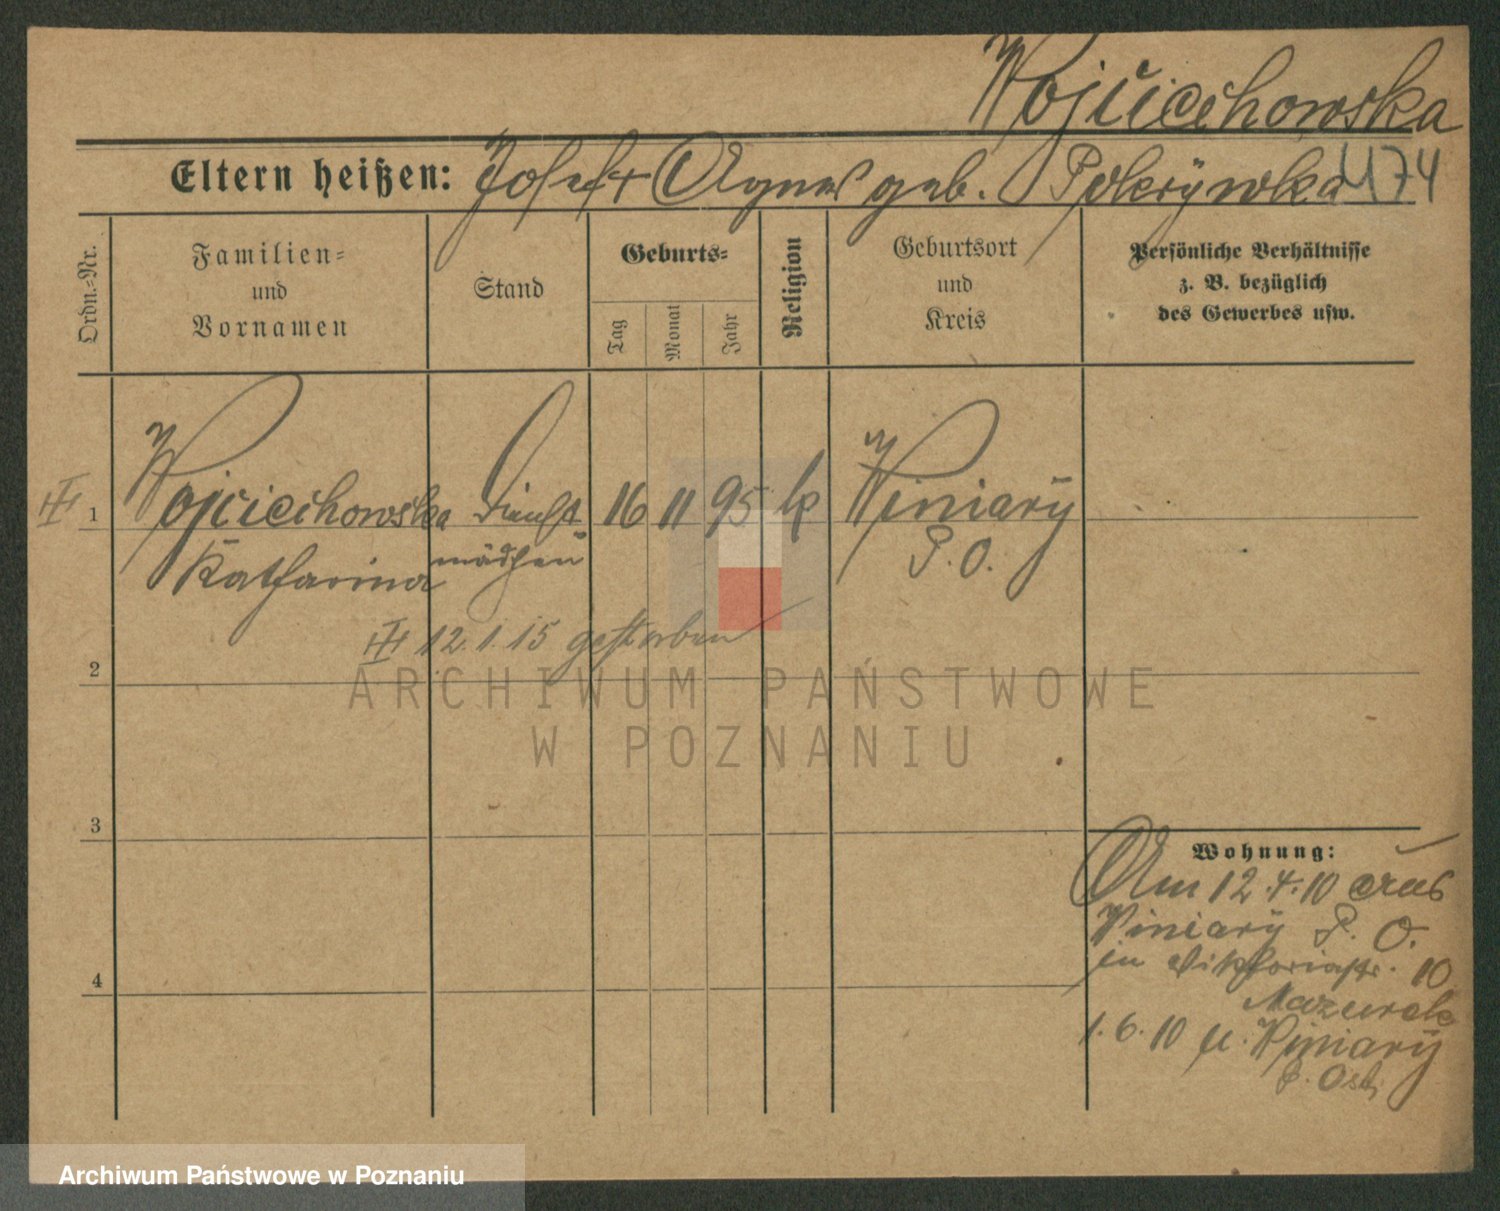 Wojciechowska
Eltern heißen: Josef + Agnes geb. Pokrywka 1174
Ordn.=Nr.
Familien=
und
Vornamen
Stand
Geburts=
Tag
Monat
Jahr
Religion
Geburtsort
und
Kreis
Persönliche Verhältnisse
z. B. bezüglich
des Gewerbes usw.
1 Wojciechowska Dienst 16 11 95 k Winiary
Katharina mädchen P. O.
12.1.15 gestorben
2
3
4
Wohnung:
Am 12.4.10 aus
Winiary P. O.
in Viktoriastr. 10
Mazurek
1.6.10 n. Winiary
P. Ost
ARCHIWUM PAŃSTWOWE
W POZNANIU
Archiwum Państwowe w Poznaniu